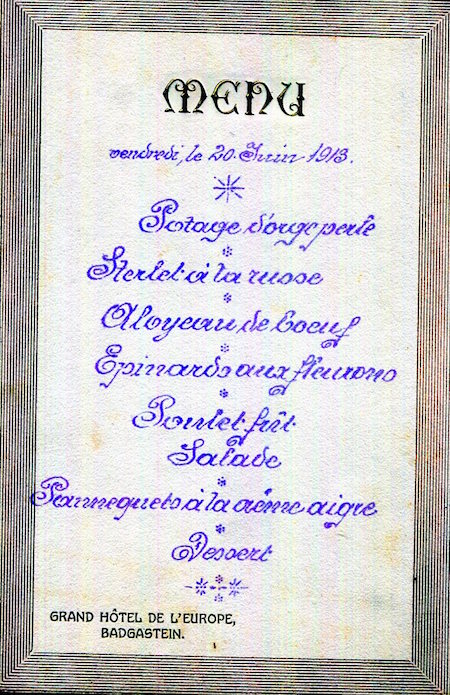 MENU
vendredi, le 20. Juin 1913.
Potage d'orge perlé
Sterlet à la russe
Aloyeau de boeuf
Epinards aux fleurons
Poulet frit
Salade
Pannequets à la crême aigre
Dessert
GRAND HÔTEL DE L'EUROPE,
BADGASTEIN.